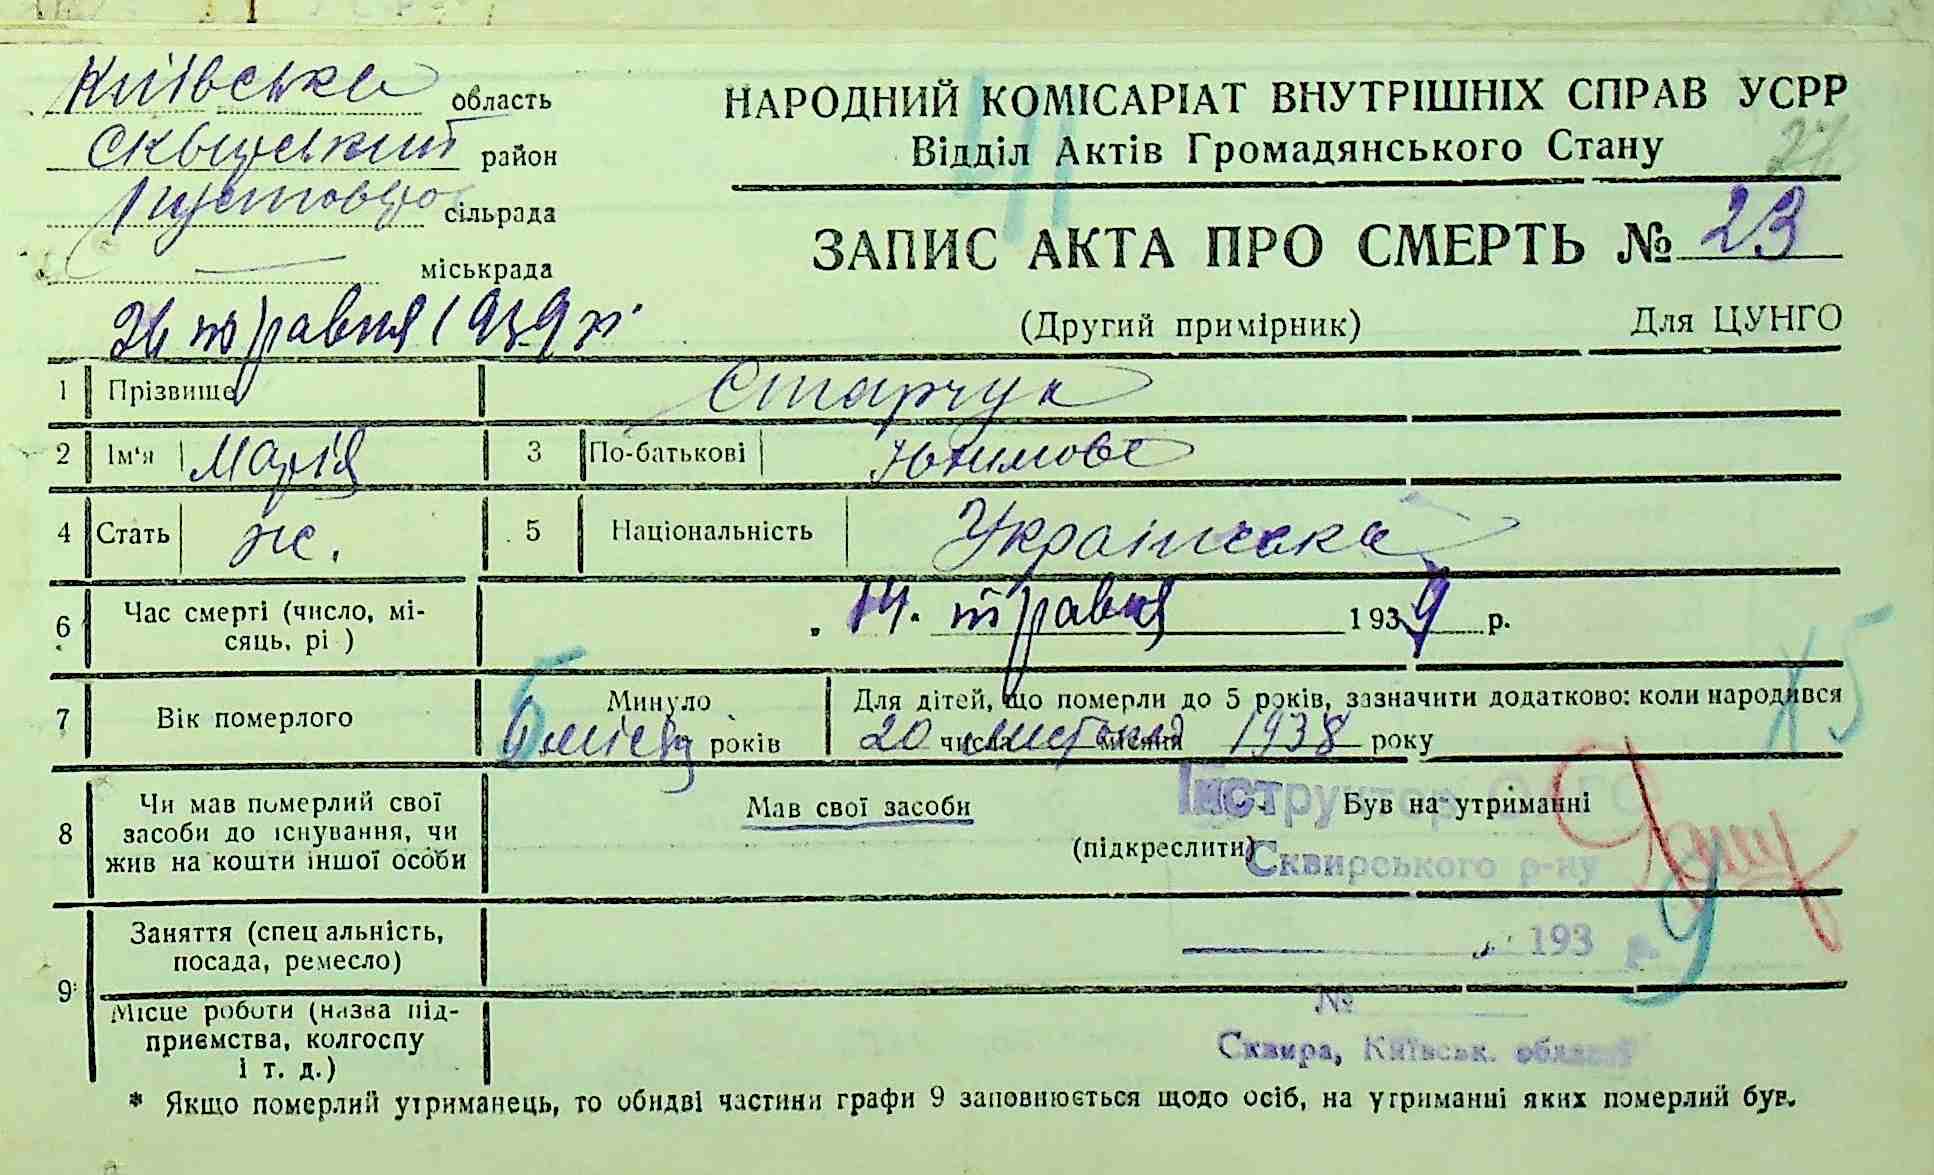 Київська область
Сквирський район
сільрада
міськрада
НАРОДНИЙ КОМІСАРІАТ ВНУТРІШНІХ СПРАВ УСРР
Відділ Актів Громадянського Стану
ЗАПИС АКТА ПРО СМЕРТЬ № 23
(Другий примірник) Для ЦУНГО
26 травня 1939 р.
1 Прізвище Старчук
2 Ім'я Марія 3 По-батькові Юхимова
4 Стать ж. 5 Національність Українська
6 Час смерті (число, мі-
сяць, рі ) 14. травня 1939 р.
7 Вік померлого Минуло 6 місяц років Для дітей, що померли до 5 років, зазначити додатково: коли народився
20 числа листопад місяця 1938 року
8 Чи мав померлий свої
засоби до існування, чи
жив на кошти іншої особи
Мав свої засоби Був на утриманні
(підкреслити)
Інструктор
Сквирського р-ну
9 Заняття (спец альність,
посада, ремесло)
193 р.
Місце роботи (назва під-
приємства, колгоспу
і т. д.)
№
Сквира, Київськ. області
* Якщо померлий утриманець, то обидві частини графи 9 заповнюється щодо осіб, на утриманні яких померлий був.